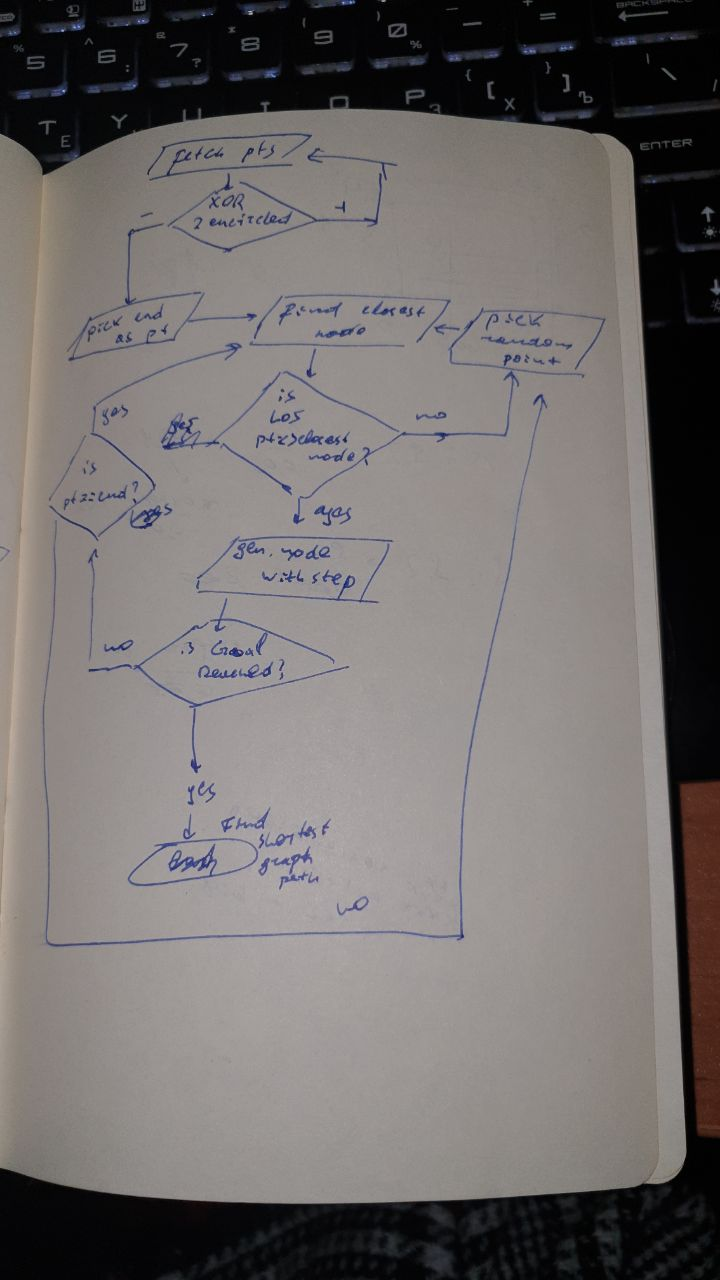 5
6
7
8
9
0
BACKSPACE
T E
Y
U
I
O
P З
[ Х
] Ъ
\
ENTER
fetch pts
XOR
2 encircled
-
+
pick end
as pt
find closest
node
pick
random
point
is
LOS
pt⇒closest
node?
no
yes
yes
is
pt=end?
yes
gen. node
with step
is Goal
reached?
no
yes
Find
shortest
graph
path
End
no